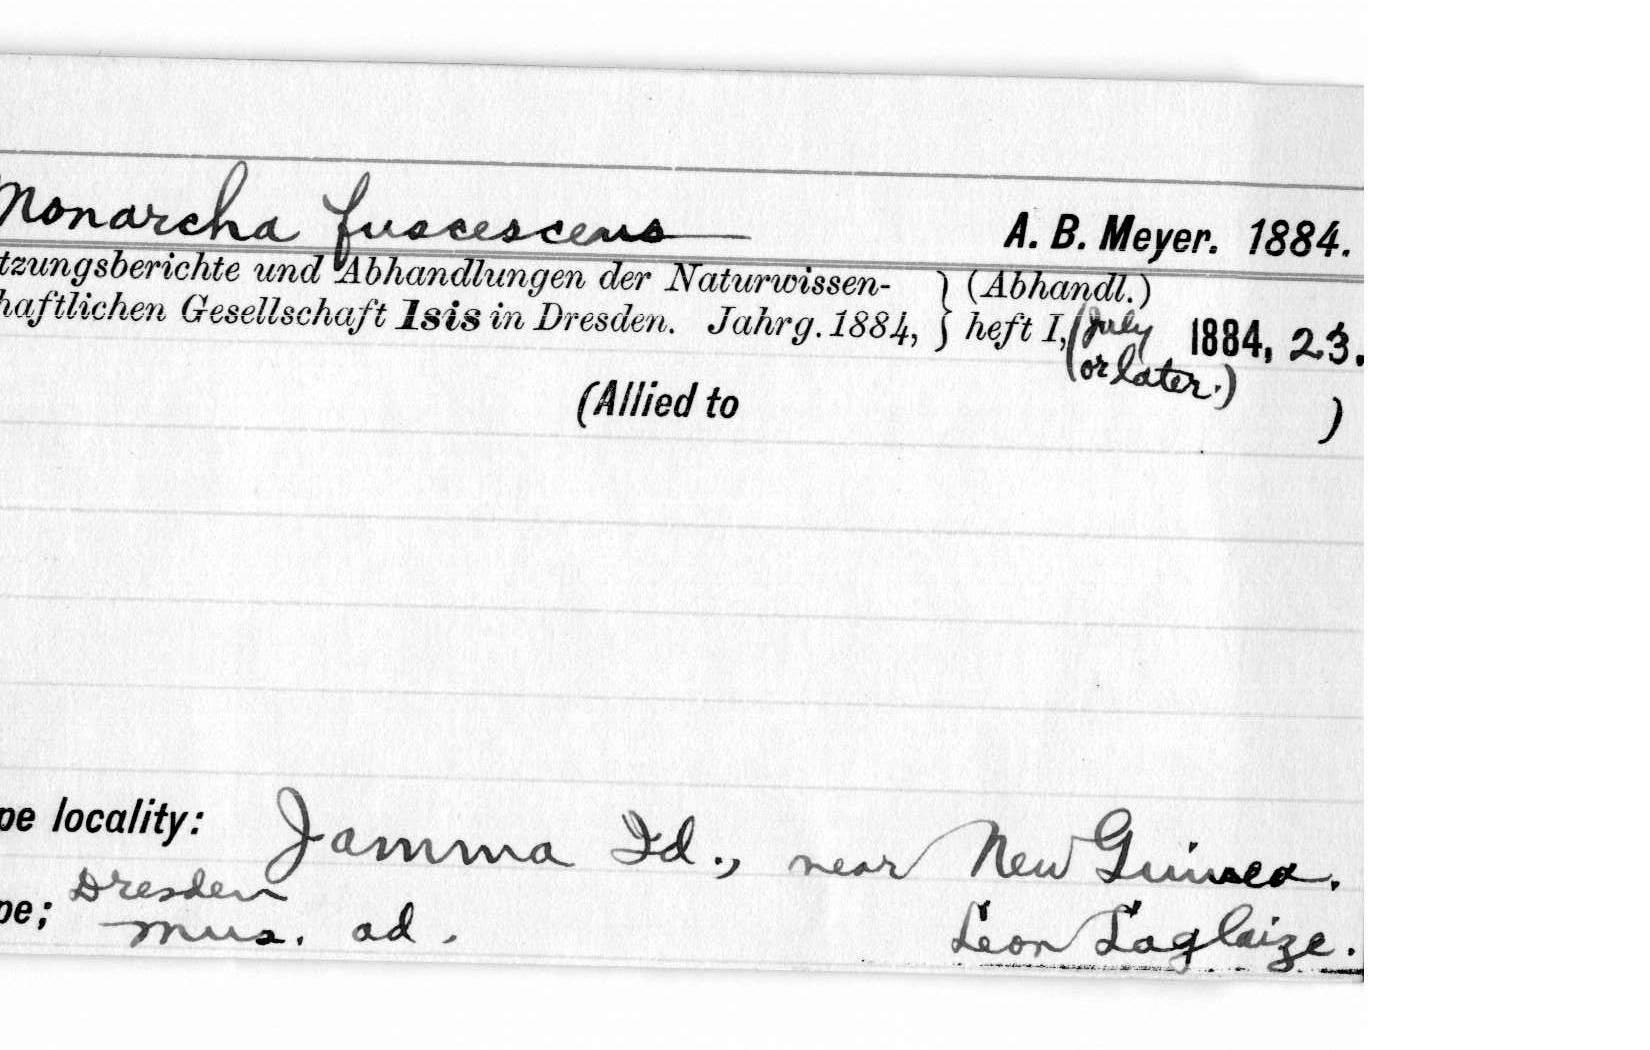 Monarcha fuscescens A. B. Meyer. 1884.
tzungsberichte und Abhandlungen der Naturwissen- } (Abhandl.)
haftlichen Gesellschaft Isis in Dresden. Jahrg. 1884, } heft I, (July 1884, 23.
or later.)
(Allied to )
pe locality: Jamma Id., near New Guinea.
Dresden
pe; mus. ad. Léon Laglaize.